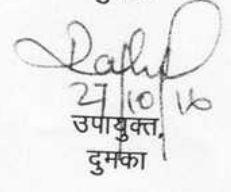 27/10/16
उपायुक्त,
दुमका